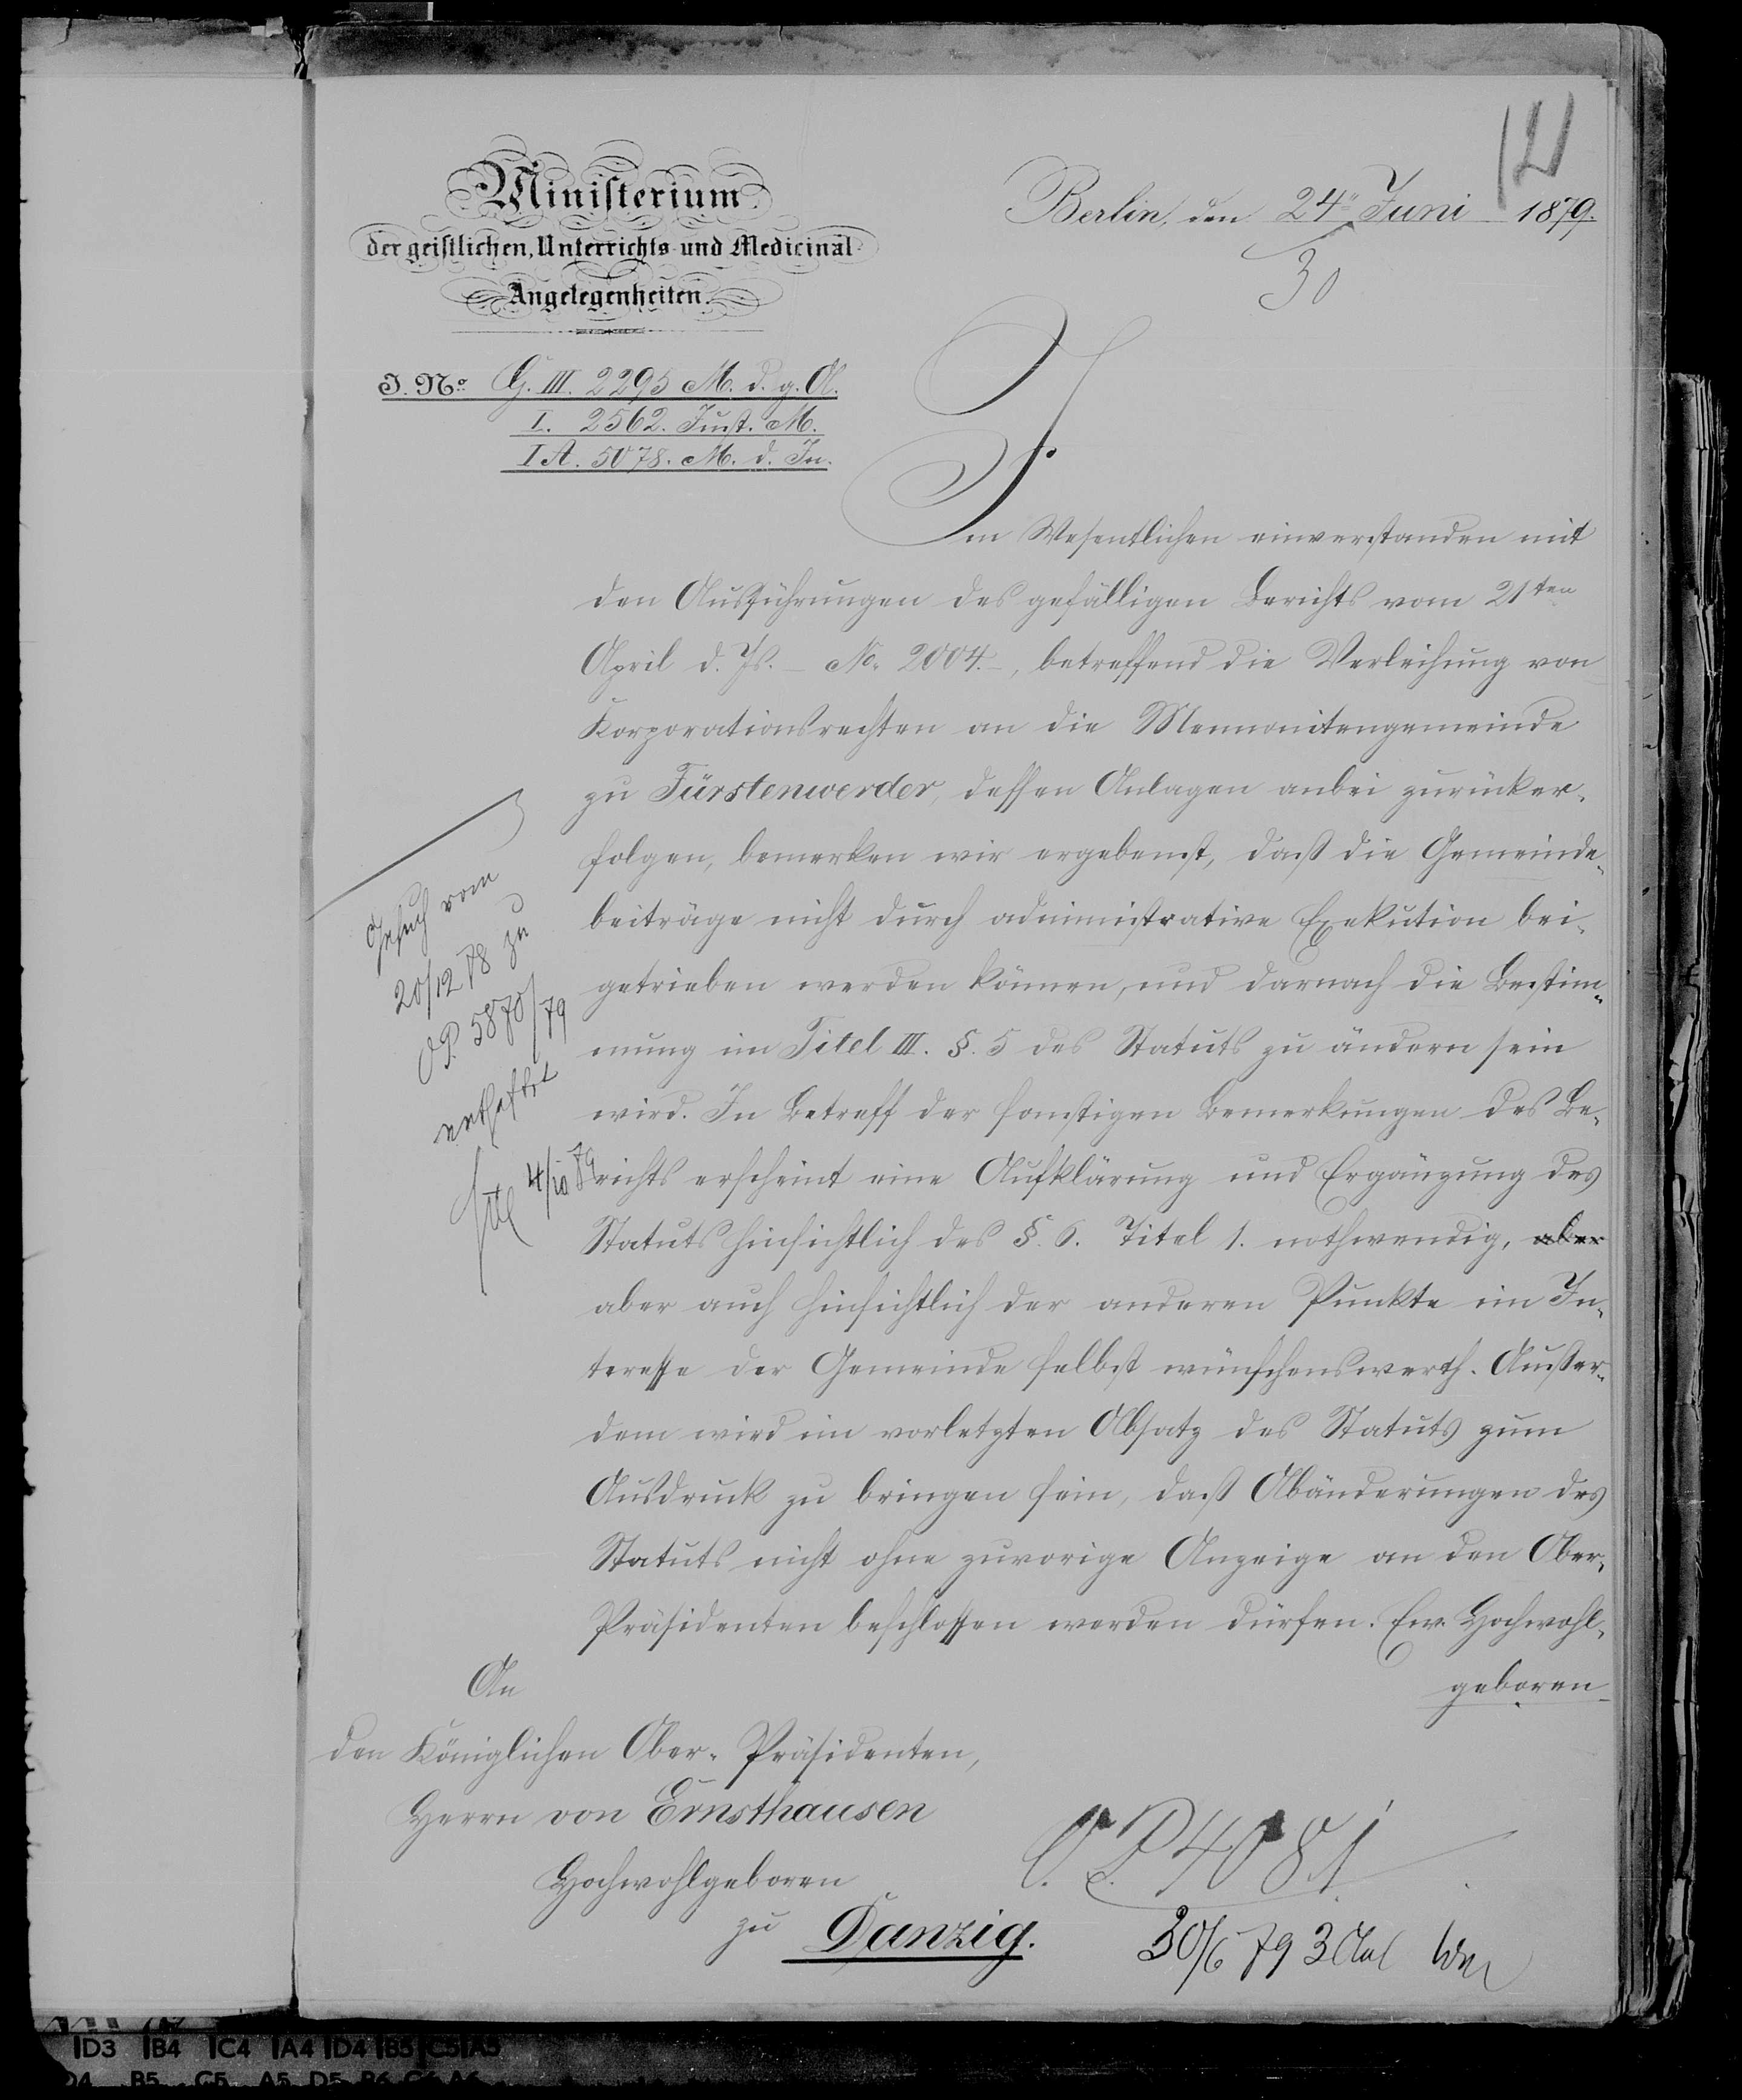 121
Ministerium
der geistlichen, Unterrichts- und Medicinal-
Angelegenheiten.
Berlin, den 24ten Juni 1879.
30
J. No. G. III. 2295 M. d. g. A.
I. 2562. Just. M.
I A. 5078. M. d. In.
Im Wesentlichen einverstanden mit
den Ausführungen des gefälligen Berichts vom 21ten
April d. Js. – No. 2004. –, betreffend die Verleihung von
Korporationsrechten an die Mennonitengemeinde
zu Fürstenwerder, dessen Anlagen anbei zurücker-
folgen, bemerken wir ergebenst, daß die Gemeinde-
beiträge nicht durch administrative Exekution bei-
getrieben werden können, und darnach die Bestim-
mung im Titel III. §. 5 des Statuts zu ändern sein
wird. In Betreff der sonstigen Bemerkungen des Be-
richts erscheint eine Aufklärung und Ergänzung des
Statuts hinsichtlich des §. 6. Titel 1. nothwendig, aber
aber auch hinsichtlich der anderen Punkte im In-
teresse der Gemeinde selbst wünschenswerth. Außer-
dem wird im vorletzten Absatz des Statuts zum
Ausdruck zu bringen sein, daß Abänderungen des
Statuts nicht ohne zuvorige Anzeige an den Ober-
Präsidenten beschlossen werden dürfen. Ew. Hochwohl-
geboren
Gesuch vom
20/12 78 zu
O.P. 5870/79
entheftet
4/10 79
An
den Königlichen Ober-Präsidenten,
Herrn von Ernsthausen
Hochwohlgeboren
zu Danzig.
O.P. 4081
30/6 79 3 Anl
D3 B4 C4 A4 D4 B5 C5 A5
D4 B5 C5 A5 D5 B6 C6 A6